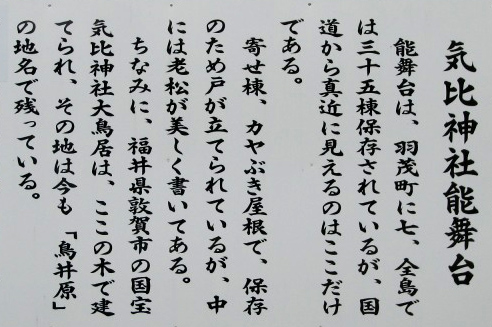 気比神社能舞台
能舞台は、羽茂町に七、全島で
は三十五棟保存されているが、国
道から真近に見えるのはここだけ
である。
寄せ棟、カヤぶき屋根で、保存
のため戸が立てられているが、中
には老松が美しく書いてある。
ちなみに、福井県敦賀市の国宝
気比神社大鳥居は、ここの木で建
てられ、その地は今も「鳥井原」
の地名で残っている。